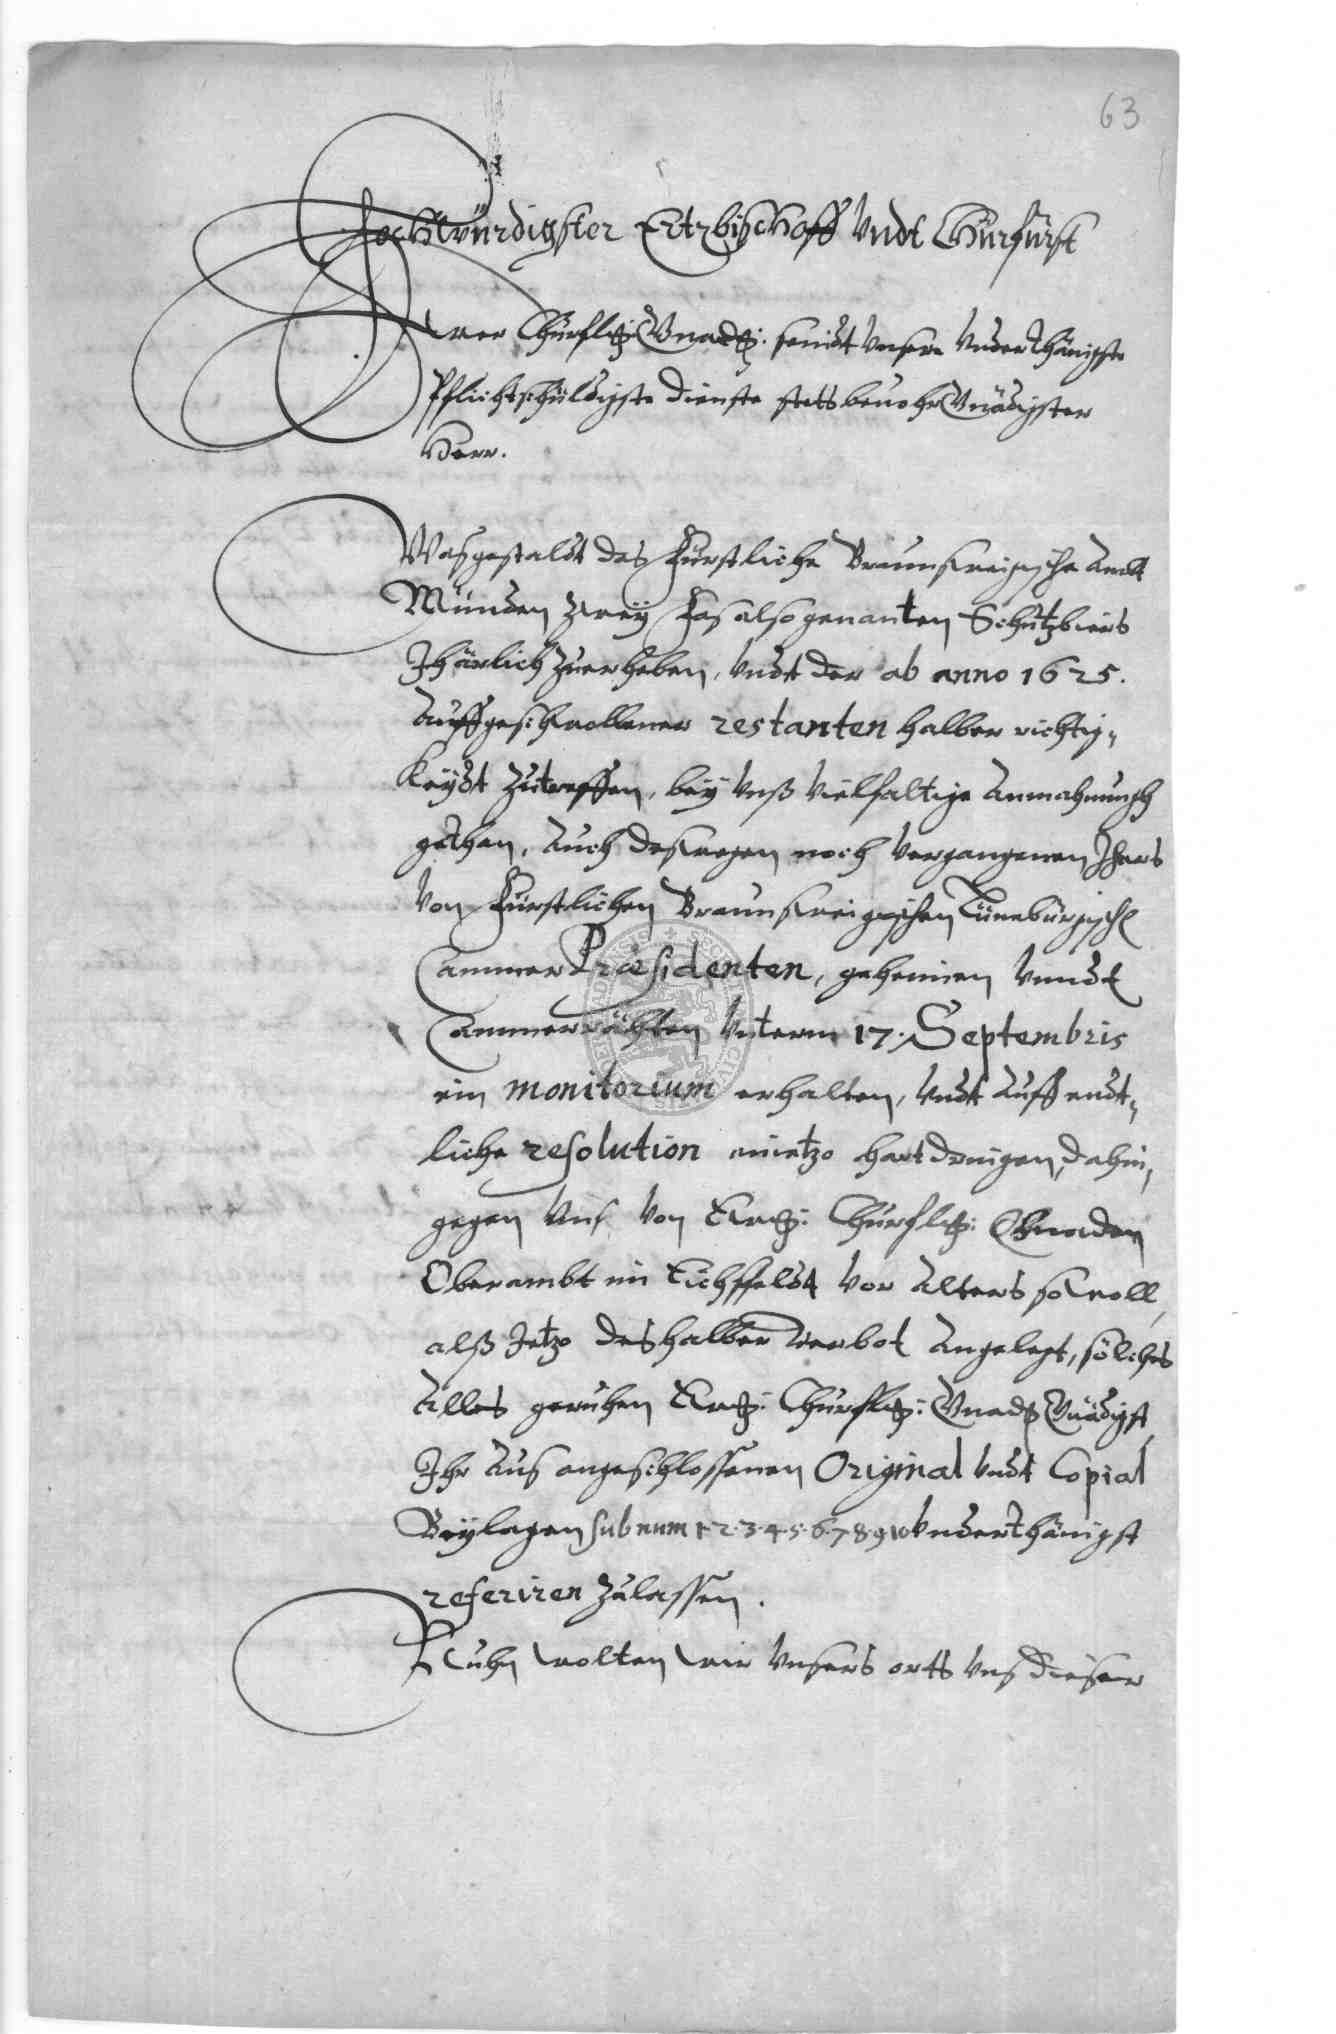 63
Hochwürdigster Ertzbischoff Undt Chürfürst
Ewer Chürfl: Gnad: seindt Unsere Underthänigste
Pflichtschüldigste Dienste stetts beuohr Gnädigster
Herr.
Wasgestaldt das Fürstliche Braunsweigische Ambt
Münden zweÿ Fas also genanten Schützbiers
Jhärlich zuerheben, Undt der ab anno 1625.
Auffgeschwollener restanten halber richtig„
Keÿdt zutreffen, beÿ Unß Vielfaltige Anmahnungh
gethan, Auch deswegen noch Vergangenen Jhars
Von Fürstlichen Braunsweigischen Lüneburgisch
Cammer Præsidenten, geheimen Unndt
Cammerrähten Unterm 17. Septembris
ein monitorium erhalten, Undt Auff endt„
liche resolution anietzo hart dringen, dahin„
gegen Uns Von Ewch: Churfl: Gnaden
Oberambt im Eichsfeldt Vor Alters sowoll,
alß Jetzo deshalber Verbot Angelegt, solches
Alles geruhen Ewch: Churfl: Gnad: Gnädigst
Ihr Aus angeschlossenen Original Undt Copial
Beÿlagen sub num 1. 2. 3. 4. 5. 6. 7 8 9 10 Underthänigst
referiren zulassen.
Nuhn wolten wir Unsers ortts Uns dieser